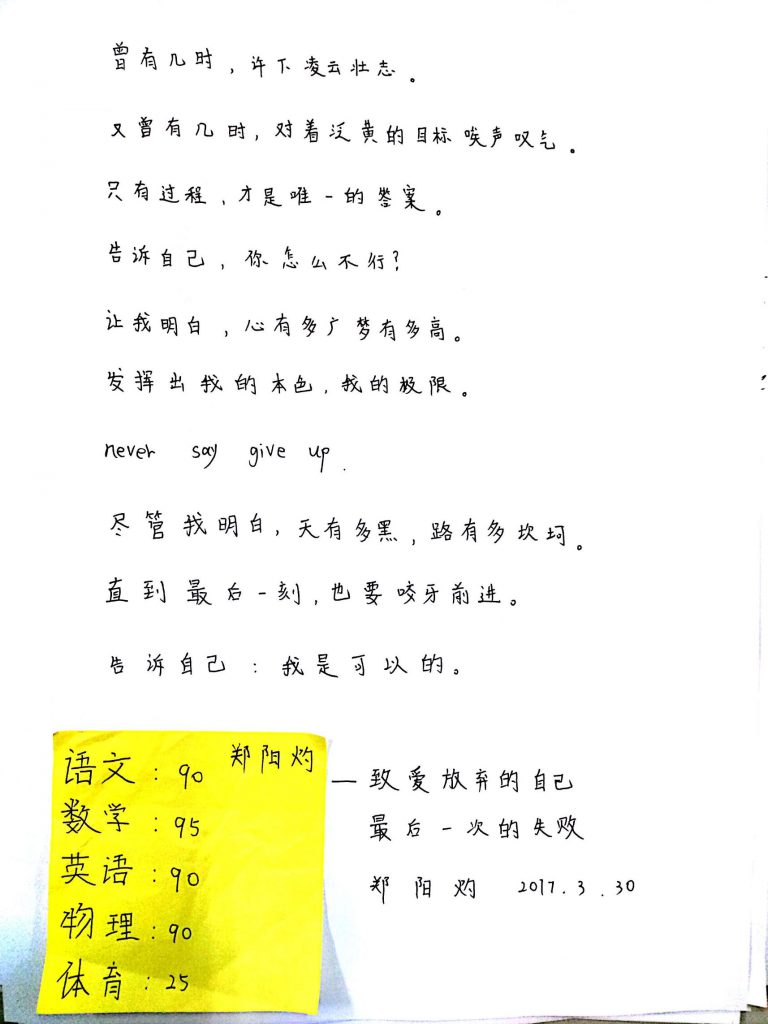 曾有几时，许下凌云壮志。
又曾有几时，对着泛黄的目标唉声叹气。
只有过程，才是唯一的答案。
告诉自己，你怎么不行？
让我明白，心有多广梦有多高。
发挥出我的本色，我的极限。
never say give up.
尽管我明白，天有多黑，路有多坎坷。
直到最后一刻，也要咬牙前进。
告诉自己：我是可以的。
郑阳灼
语文：90
数学：95
英语：90
物理：90
体育：25
— 致爱放弃的自己
最后一次的失败
郑阳灼 2017.3.30